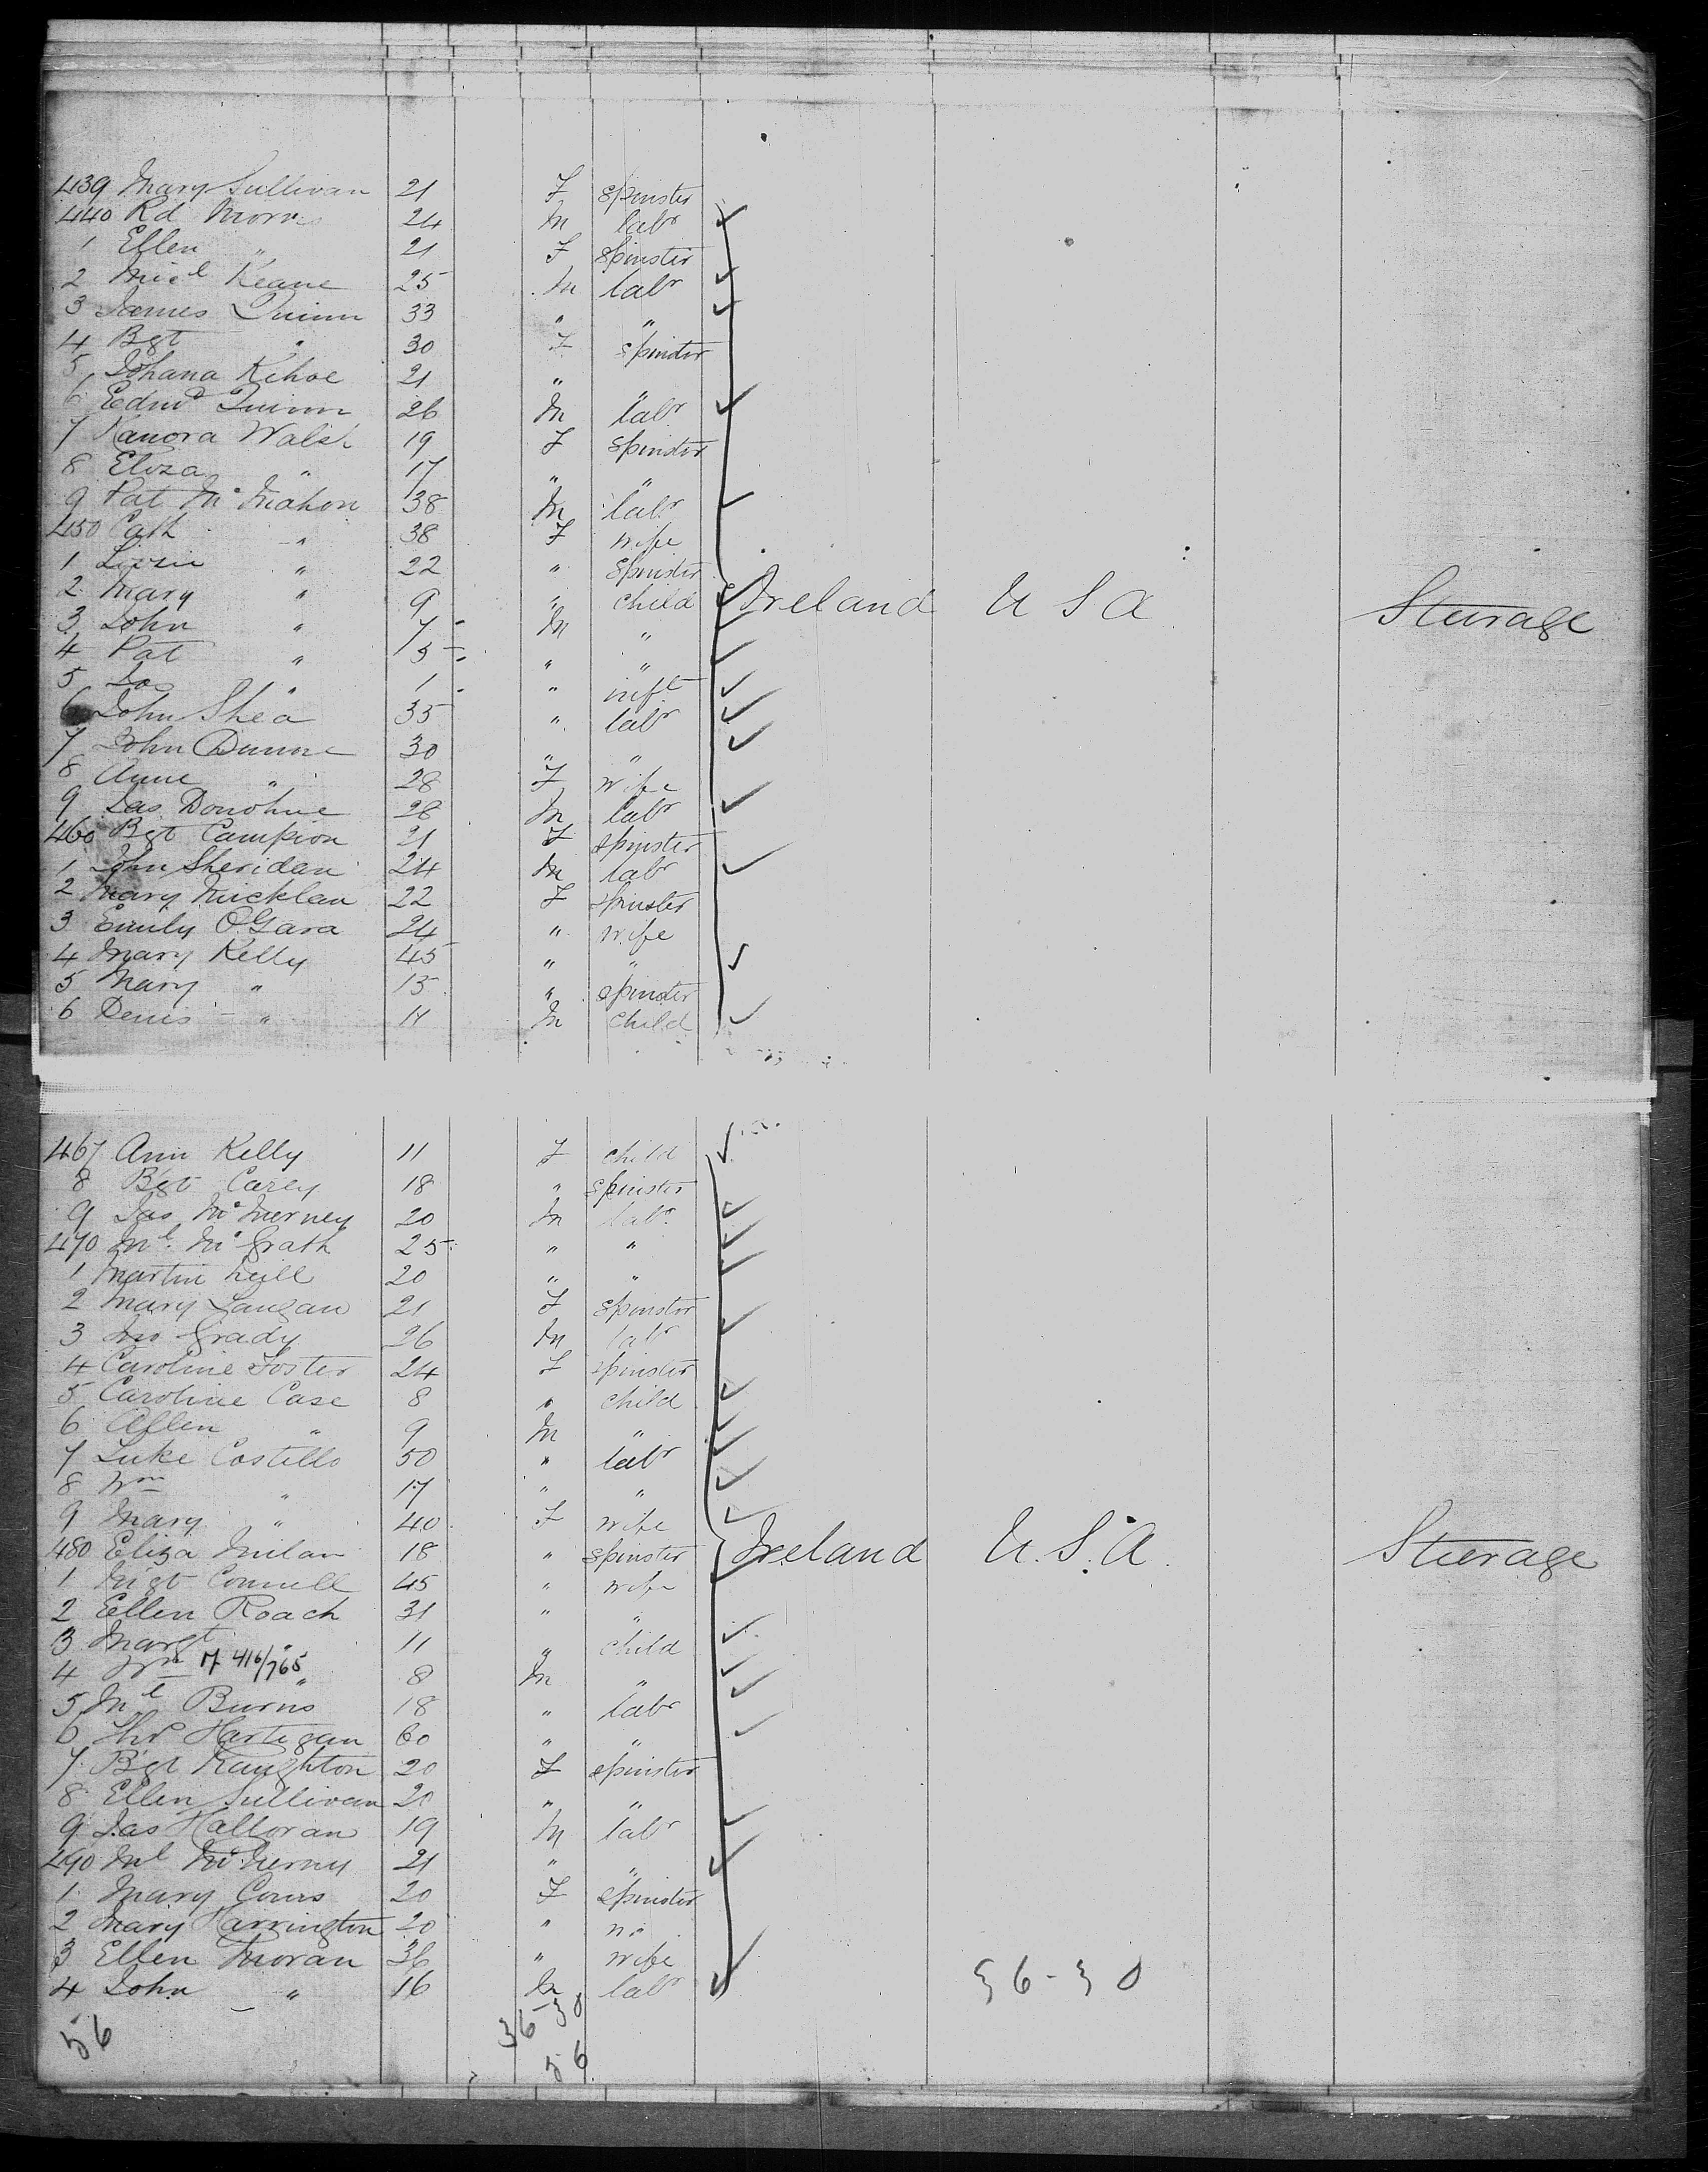 439 Mary Sullivan 21 F Spinster
440 Rd Morris 24 M labr
1 Ellen " 21 F Spinster
2 Micl Keane 25 M labr
3 James Quinn 33 " "
4 Bgt " 30 F Spinster
5 Johana Kehoe 21 " "
6 Edmd Quinn 26 M labr
7 Hanora Walsh 19 F Spinster
8 Eliza " 17 " "
9 Pat Mc Mahon 38 M labr
450 Cath " 38 F wife
1 Lizzie " 22 " Spinster
2 Mary " 9 " child Ireland U S A Steerage
3 John " 7 M "
4 Pat " 5 " "
5 Jas " 1 " inft
6 John Shea 35 " labr
7 John Dunne 30 " "
8 Anne " 28 F wife
9 Jas Donohue 28 M labr
460 Bgt Campion 21 F Spinster
1 John Sheridan 24 M labr
2 Mary 22 F Spinster
3 Emily O'Gara 24 " wife
4 Mary Kelly 45 " "
5 Mary " 15 " Spinster
6 Denis " M child
467 Ann Kelly 11 F child
8 Bgt Carey 18 " Spinster
9 Jas McInerney 20 M labr
470 Ml McGrath 25 " "
1 Martin 20 " "
2 Mary Langan 21 F Spinster
3 Jno Grady 26 M labr
4 Caroline Foster 24 F Spinster
5 Caroline Case 8 " child
6 Allen " 9 M "
7 Luke Costello 50 " labr
8 Wm " 17 " "
9 Mary " 40 F wife
480 Eliza Milan 18 " Spinster Ireland U.S.A. Steerage
1 Mgt Connell 45 " wife
2 Ellen Roach 31 " "
3 Margt " 11 " child
4 Wm 17 416/765 " 8 M "
5 Ml Burns 18 " labr
6 Hartigan 60 " "
7 Bgt Naughton 20 F Spinster
8 Ellen Sullivan 20 " "
9 Jas Halloran 19 M labr
490 Ml McInerny 21 " "
1 Mary 20 F Spinster
2 Mary Harrington 20 "
3 Ellen Moran 36 " wife
4 John " 16 M labr
36-30
56
36-30
56